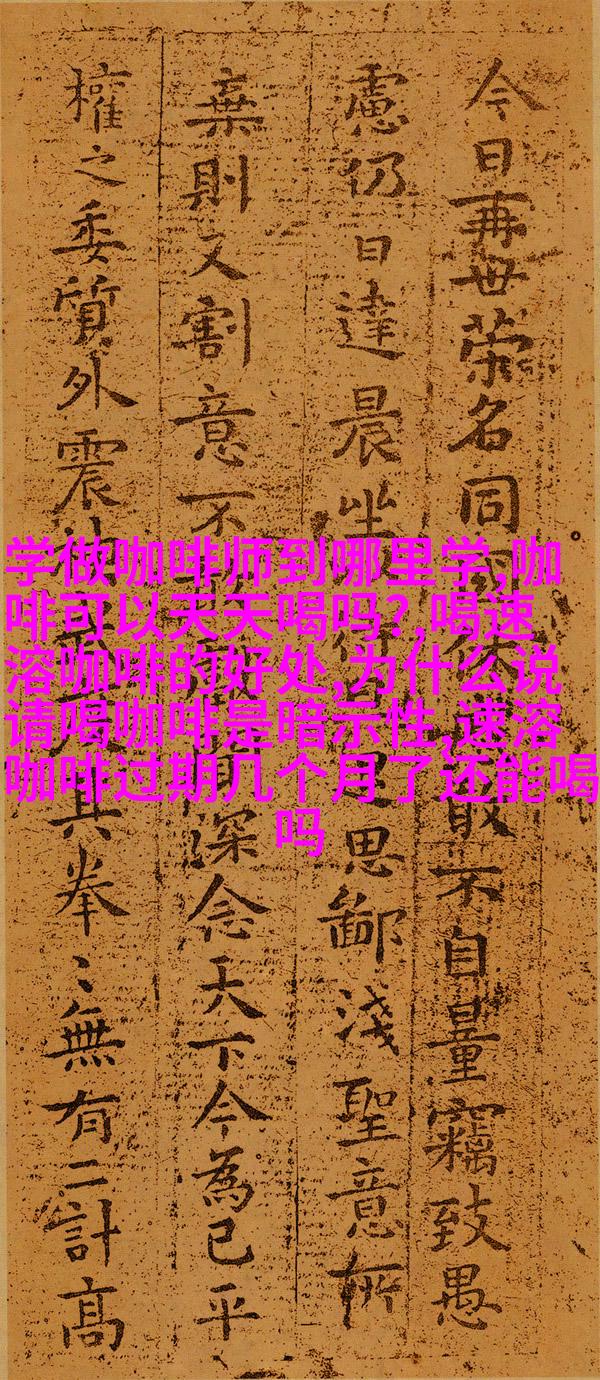 今日再世榮名同國休敢不自量竊致愚
慮仍日達晨坐待思鄙淺聖意所
棄則又割意不敢深念天下今為已平
權之委質外震神其拳〻無有二計高
学做咖啡师到哪里学,咖
啡可以天天喝吗?,喝速
溶咖啡的好处,为什么说
请喝咖啡是暗示性,速溶
咖啡过期几个月了还能喝
吗